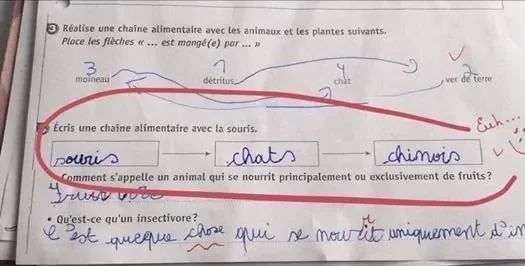 3 Réalise une chaîne alimentaire avec les animaux et les plantes suivants.
Place les flèches « ... est mangé(e) par ... »
3 1 4 2
moineau détritus chat ver de terre
Écris une chaîne alimentaire avec la souris.
Euh...
souris → chats → chinois
Comment s'appelle un animal qui se nourrit principalement ou exclusivement de fruits?
• Qu'est-ce qu'un insectivore?
C'est queque chose qui se nourrit uniquement d'in